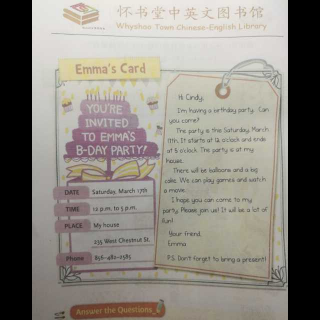 怀书堂中英文图书馆
Whyshoo Town Chinese-English Library
Emma's Card
YOU'RE
INVITED
TO EMMA'S
B-DAY PARTY!
DATE Saturday, March 17th
TIME 12 p.m. to 5 p.m.
PLACE My house
235 West Chestnut St.
Phone 856-482-2585
Hi Cindy,
I'm having a birthday party. Can
you come?
The party is this Saturday, March
17th. It starts at 12 o'clock and ends
at 5 o'clock. The party is at my
house.
There will be balloons and a big
cake. We can play games and watch
a movie.
I hope you can come to my
party. Please join us! It will be a lot of
fun!
Your friend,
Emma
P.S. Don't forget to bring a present!
Answer the Questions